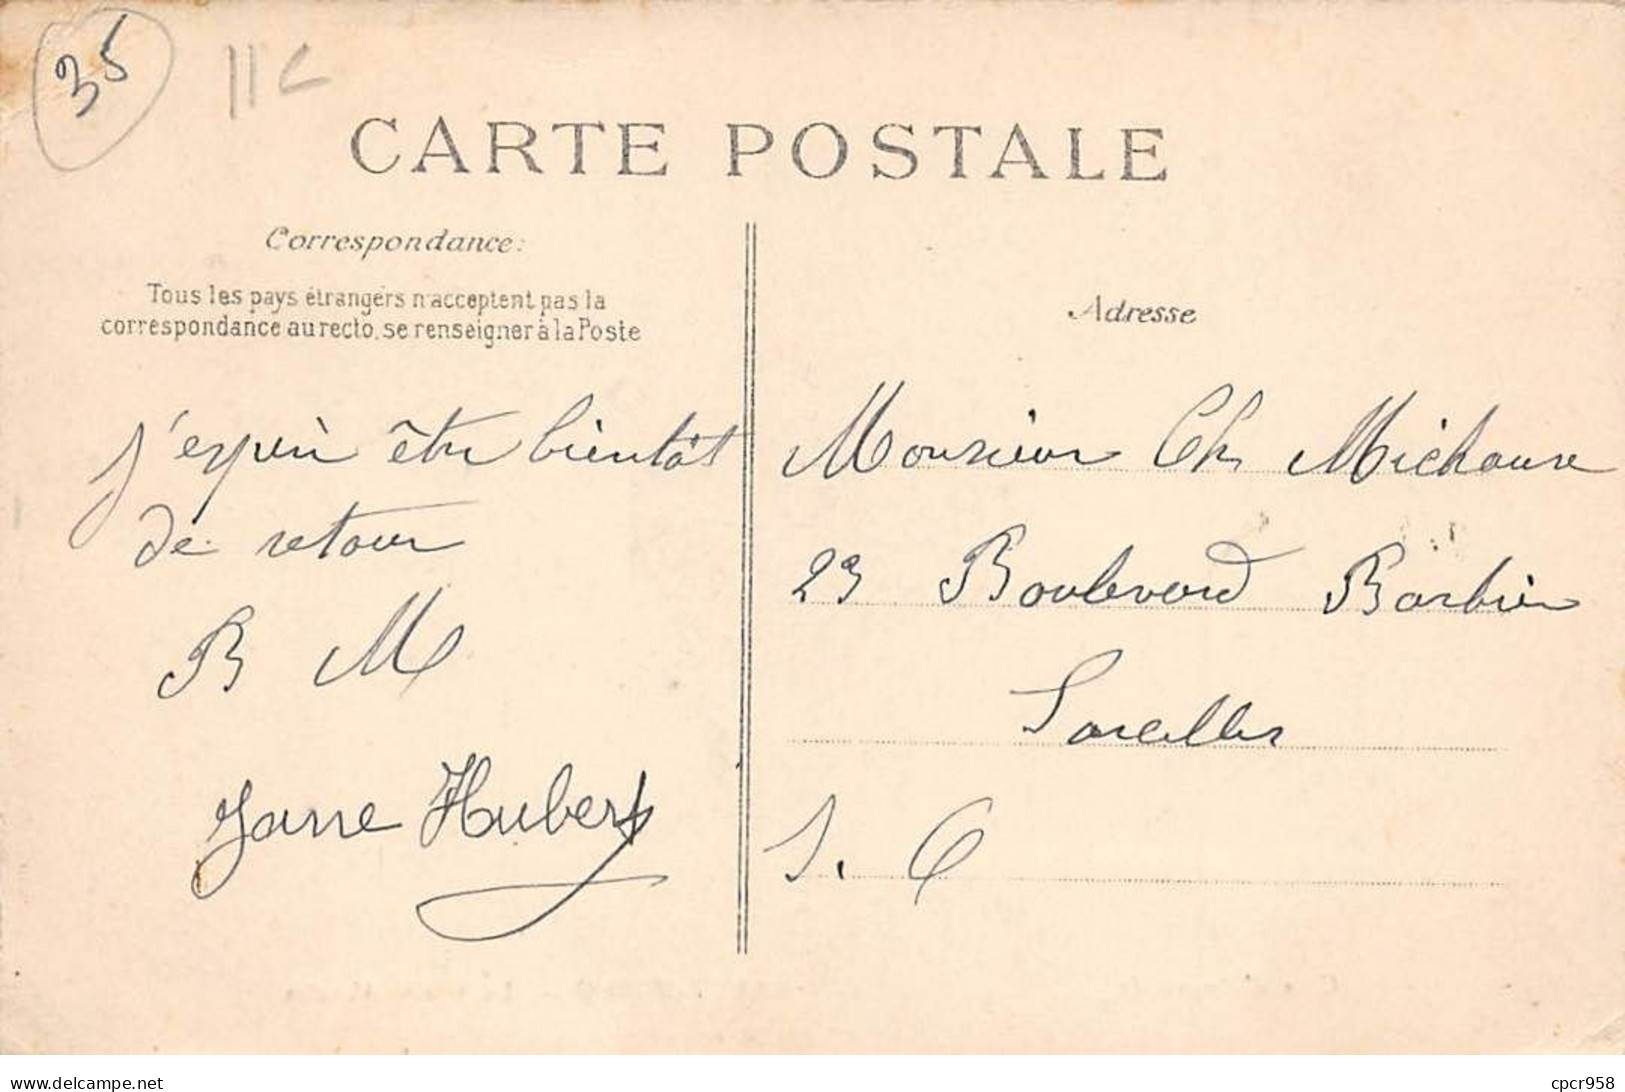 35
11C
CARTE POSTALE
Correspondance:
Tous les pays étrangers n'acceptent pas la
correspondance au recto, se renseigner à la Poste
Adresse
J'espère être bientôt
de retour
B M
Jane Hubert
Monsieur Ch Michaux
23 Boulevard Barbier
Sarcelles
S. O
cpcr958
www.delcampe.net